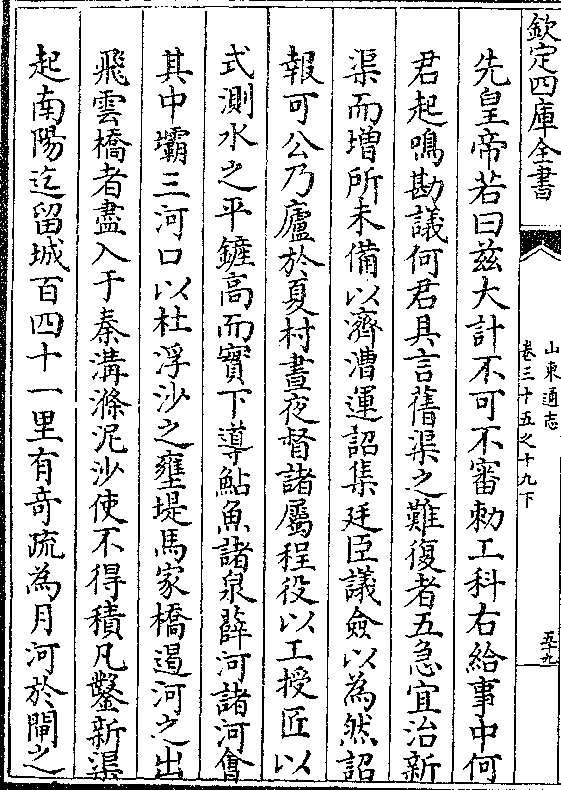 欽定四庫全書
山東通志
卷三十五之十九下
五十九
先皇帝若曰兹大計不可不審勅工科右給事中何
君起鳴勘議何君具言舊渠之難復者五急宜治新
渠而增所未備以濟漕運詔集廷臣議僉以為然詔
報可公乃廬於夏村晝夜督諸屬程役以工授匠以
式測水之平鏟高而實下導鮎魚諸泉薛河諸河會
其中壩三河口以杜浮沙之壅堤馬家橋遏河之出
飛雲橋者盡入于秦溝滌泥沙使不得積凡鑿新渠
起南陽迄留城百四十一里有奇疏為月河於閘之